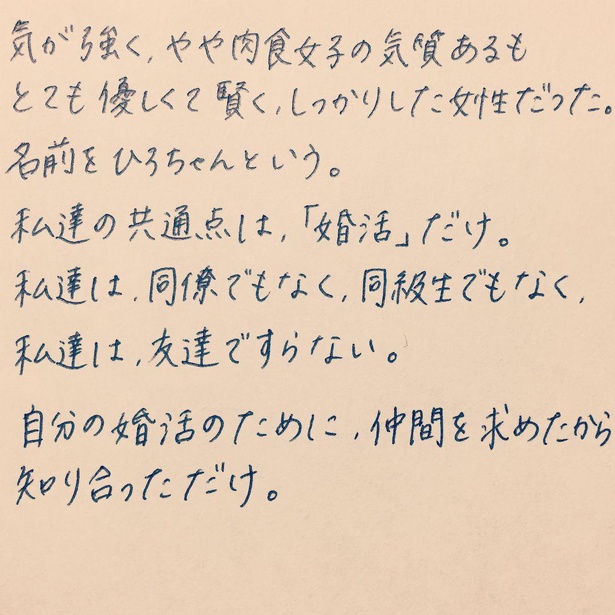 気が強く,やや肉食女子の気質あるも
とても優しくて賢く,しっかりした女性だった。
名前をひろちゃんという。
私達の共通点は,「婚活」だけ。
私達は,同僚でもなく,同級生でもなく,
私達は,友達ですらない。
自分の婚活のために,仲間を求めたから
知り合っただけ。